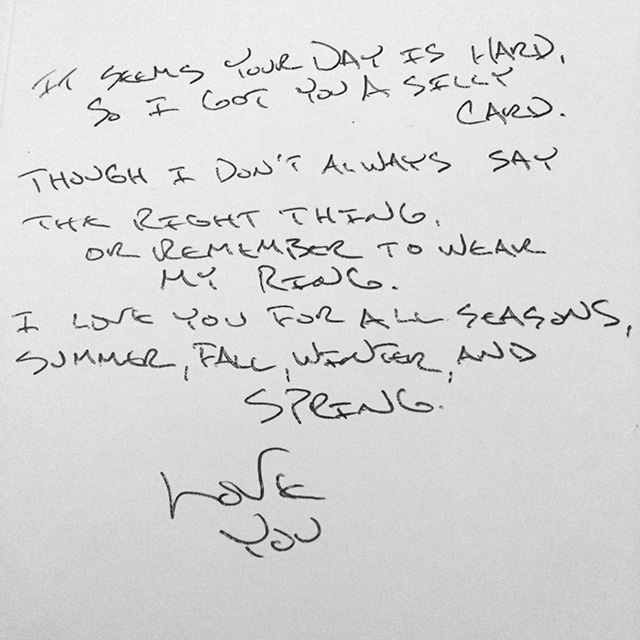 IT SEEMS YOUR DAY IS HARD,
SO I GOT YOU A SILLY
CARD.
THOUGH I DON'T ALWAYS SAY
THE RIGHT THING,
OR REMEMBER TO WEAR
MY RING.
I LOVE YOU FOR ALL SEASONS,
SUMMER, FALL, WINTER, AND
SPRING.
LOVE
YOU